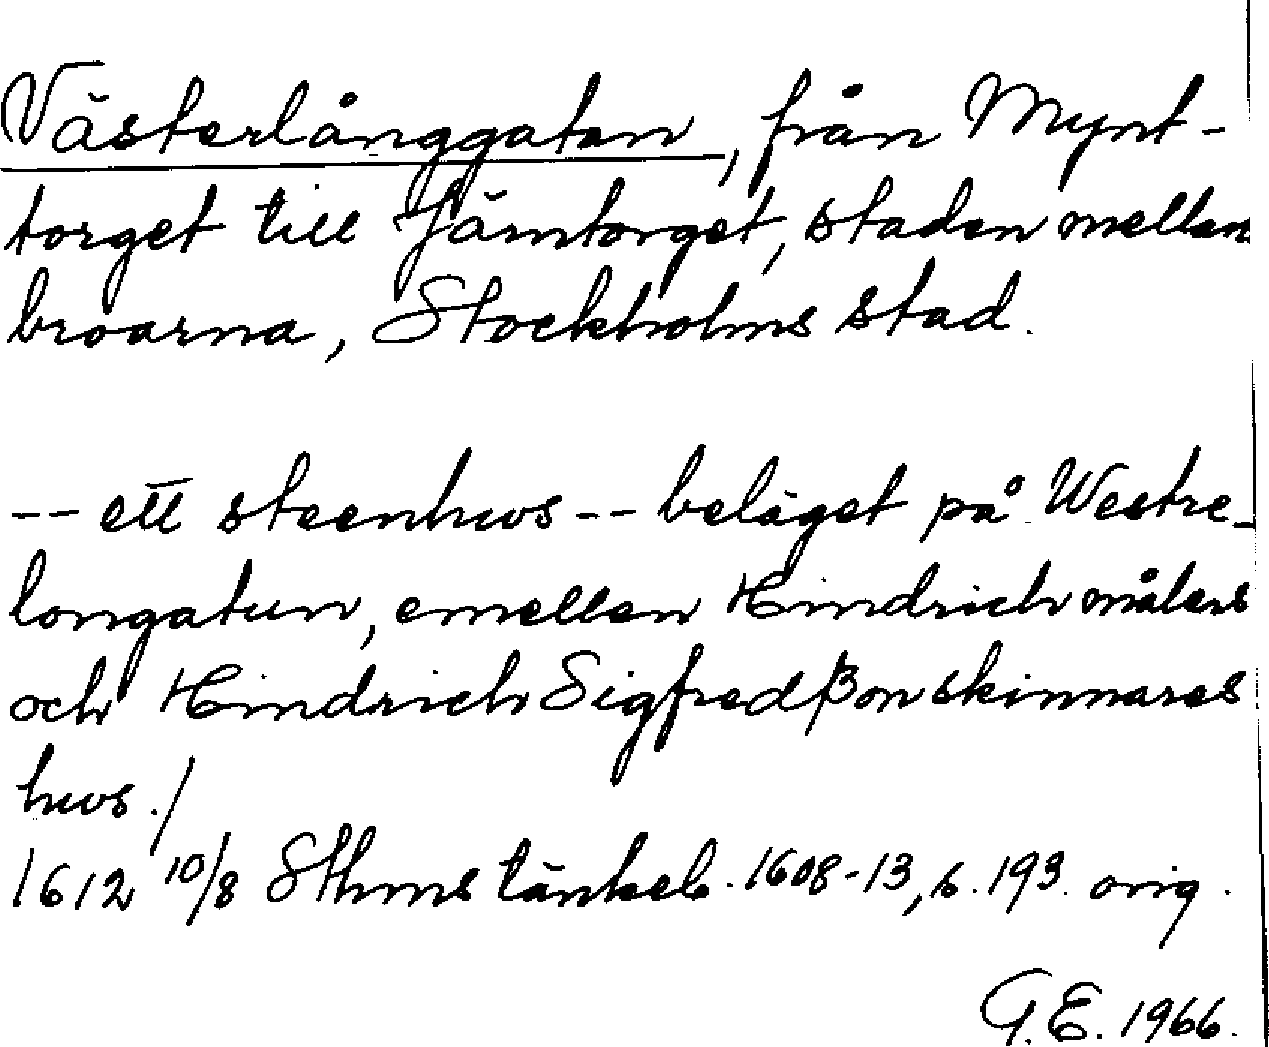 Västerlånggatan, från Mynt-
torget till Järntorget, staden mellan
broarna, Stockholms stad.
-- ett steenhus -- beläget på Westre-
longatun, emellan Hindrich målers
och Hindrich Sigfredßon skinnares
hus./
1612 10/8 Sthms tänkeb. 1608-13, s. 193. orig.
G.E. 1966.